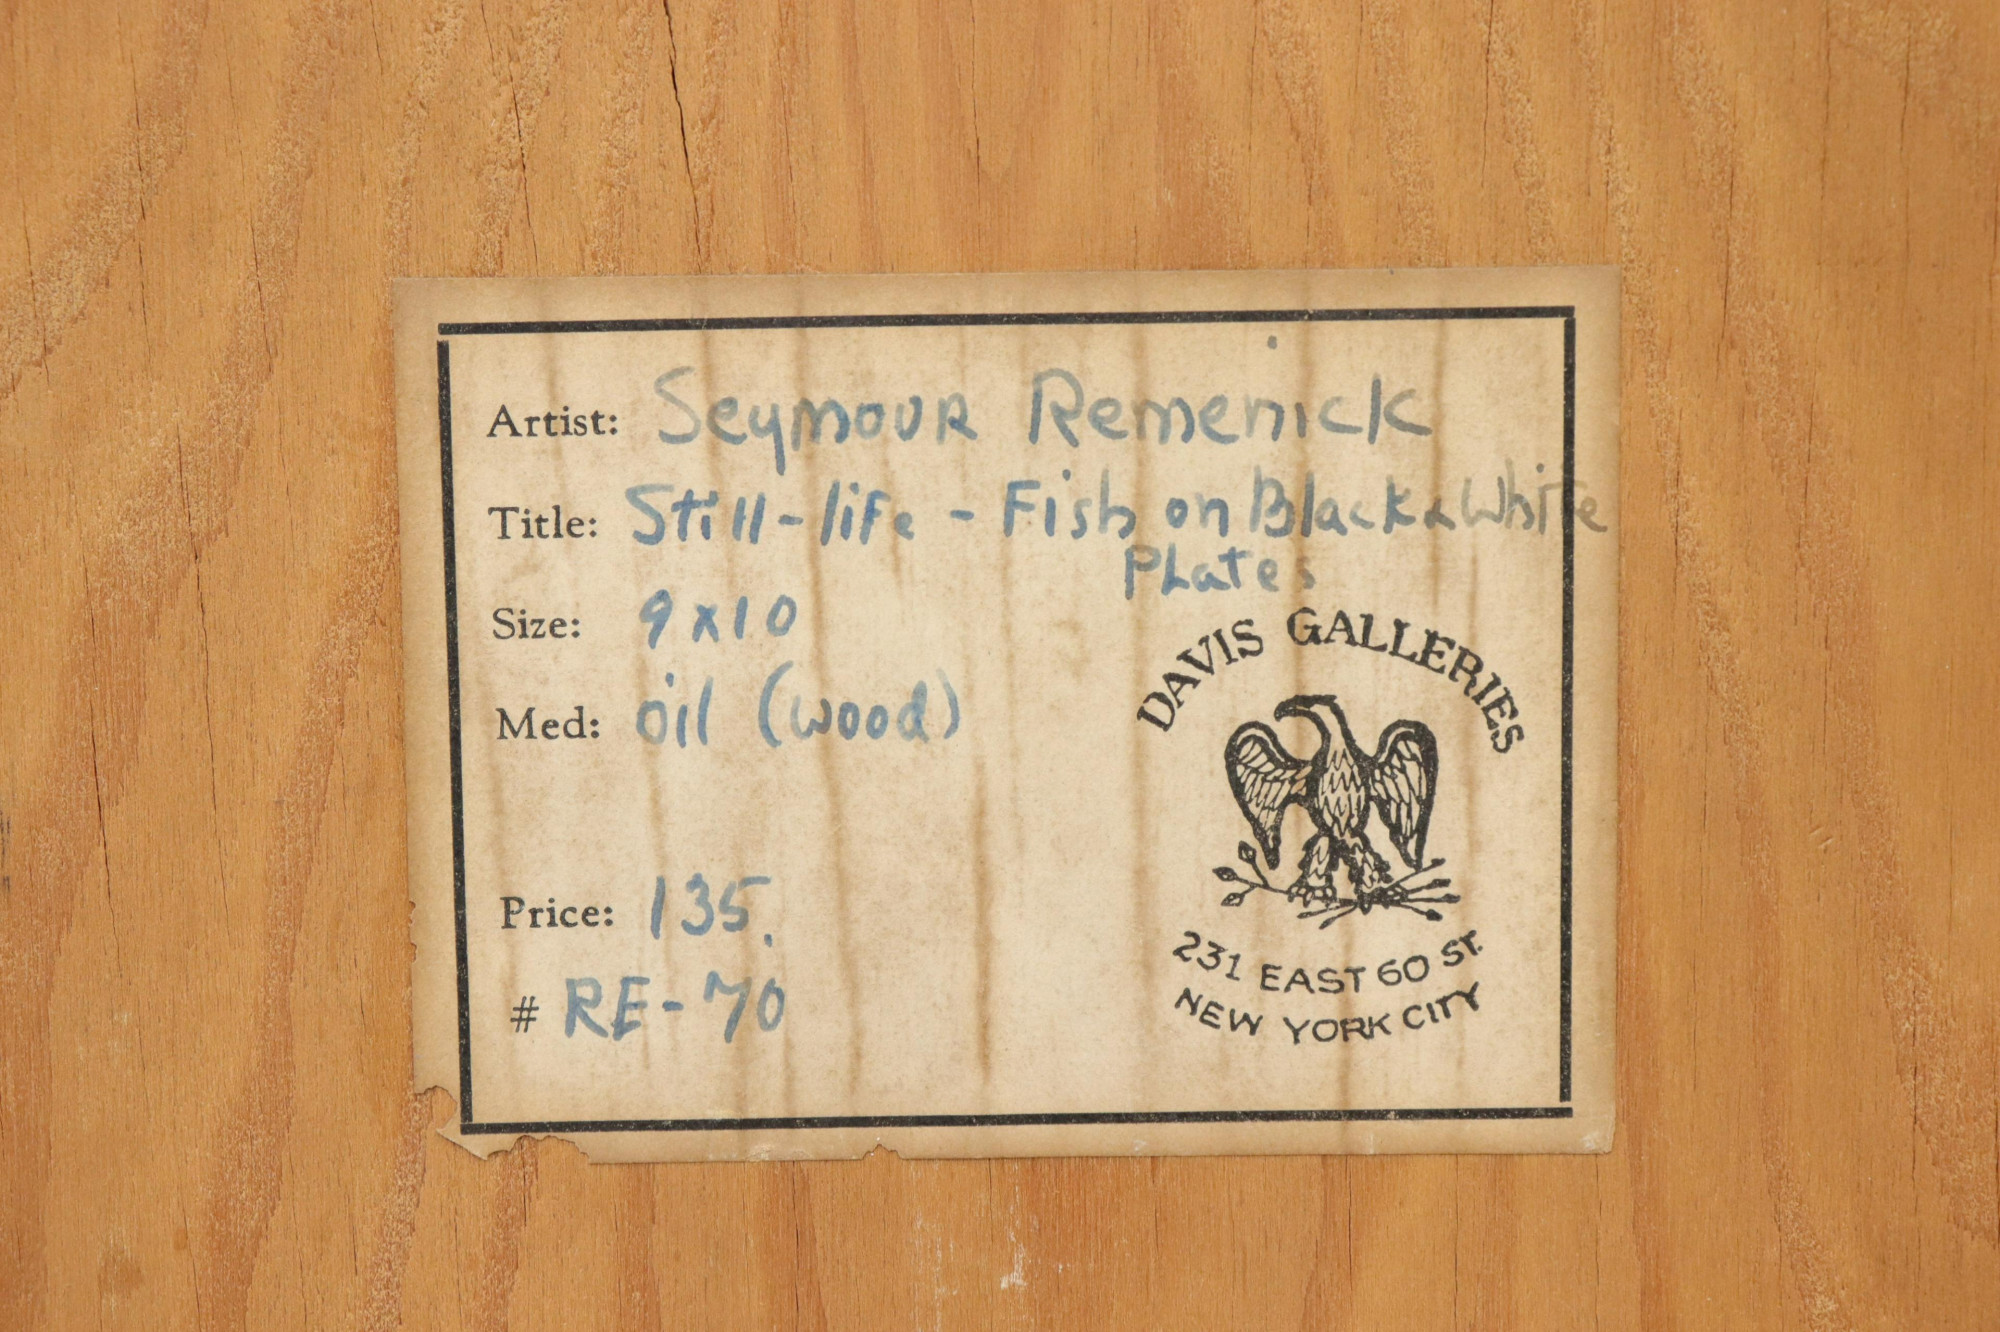 Artist: Seymour Remenick
Title: Still-life - Fish on Black & White
Plates
Size: 9 x 10
Med: oil (wood)
Price: 135.
# RE-70
DAVIS GALLERIES
231 EAST 60 ST.
NEW YORK CITY